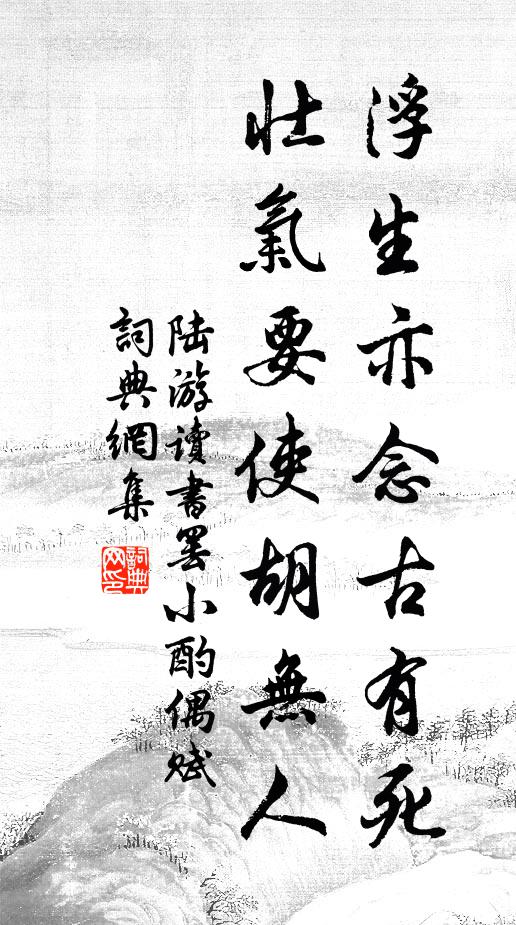 浮生亦念古有死
壯氣要使胡無人
陸游讀書罢小酌偶赋
詞典網集
詞典网印